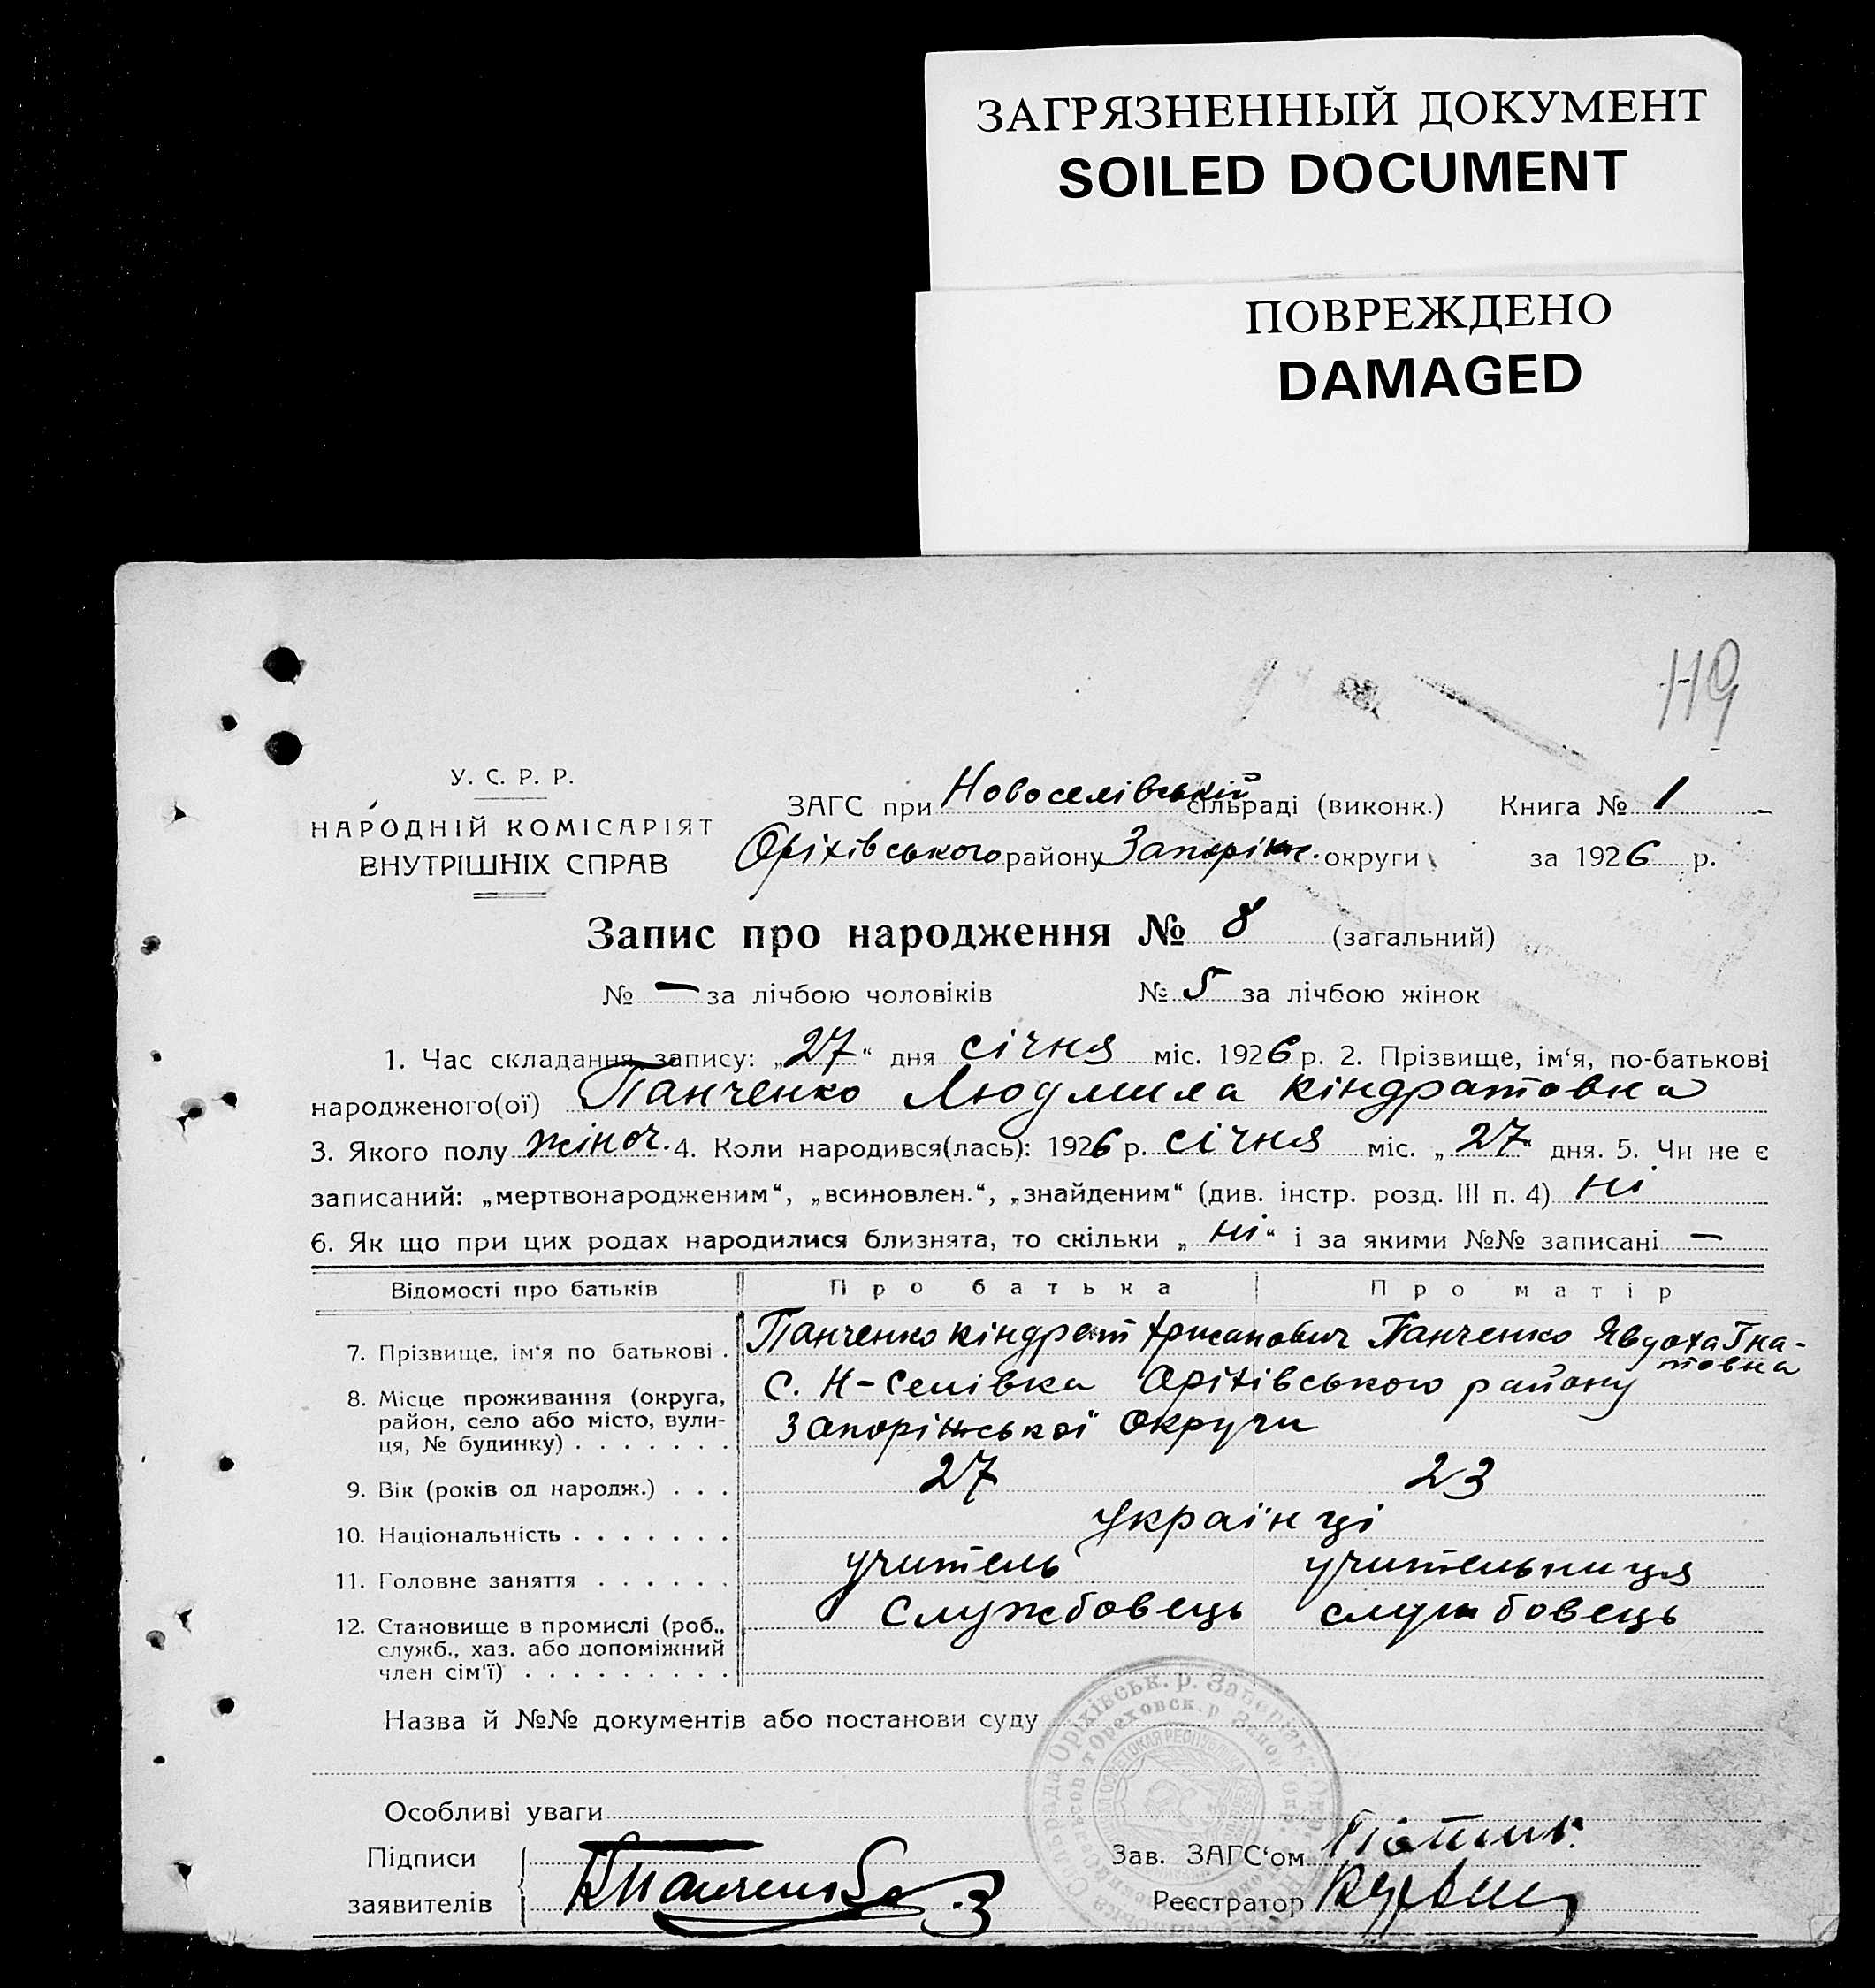 ЗАГРЯЗНЕННЫЙ ДОКУМЕНТ
SOILED DOCUMENT
ПОВРЕЖДЕНО
DAMAGED
119
У. С. Р. Р.
НАРОДНІЙ КОМІСАРІЯТ
ВНУТРІШНІХ СПРАВ
ЗАГС при Новоселівській сільраді (виконк.) Книга № 1
Оріхівського району Запоріж. округи за 1926 р.
Запис про народження № 8 (загальний)
№ — за лічбою чоловіків № 5 за лічбою жінок
1. Час складання запису: „27“ дня січня міс. 1926 р. 2. Прізвище, ім‘я, по-батькові
народженого(ої) Панченко Людмила Кіндратовна
3. Якого полу жіноч. 4. Коли народився(лась): 1926 р. січня міс. „27“ дня. 5. Чи не є
записаний: „мертвонародженим“, „всиновлен.“, „знайденим“ (див. інстр. розд. III п. 4) ні
6. Як що при цих родах народилися близнята, то скільки „ні“ і за якими №№ записані —
Відомості про батьків Про батька Про матір
7. Прізвище, ім‘я по батькові . Панченко Кіндрат Панченко Явдоха Гна-
товна
8. Місце проживання (округа, С. Н-Селівка Оріхівського району
район, село або місто, вули-
ця, № будинку) . . . . . . . Запоріжської Округи
9. Вік (років од народж.) . . . 27 23
10. Національність . . . . . . . Українці
11. Головне заняття . . . . . . учитель учительниця
12. Становище в промислі (роб., Службовець службовець
служб., хаз. або допоміжний
член сім‘ї) . . . . . . . . .
Назва й №№ документів або постанови суду
Особливі уваги
Підписи
заявителів КПанченко
Зав. ЗАГС‘ом
Реєстратор